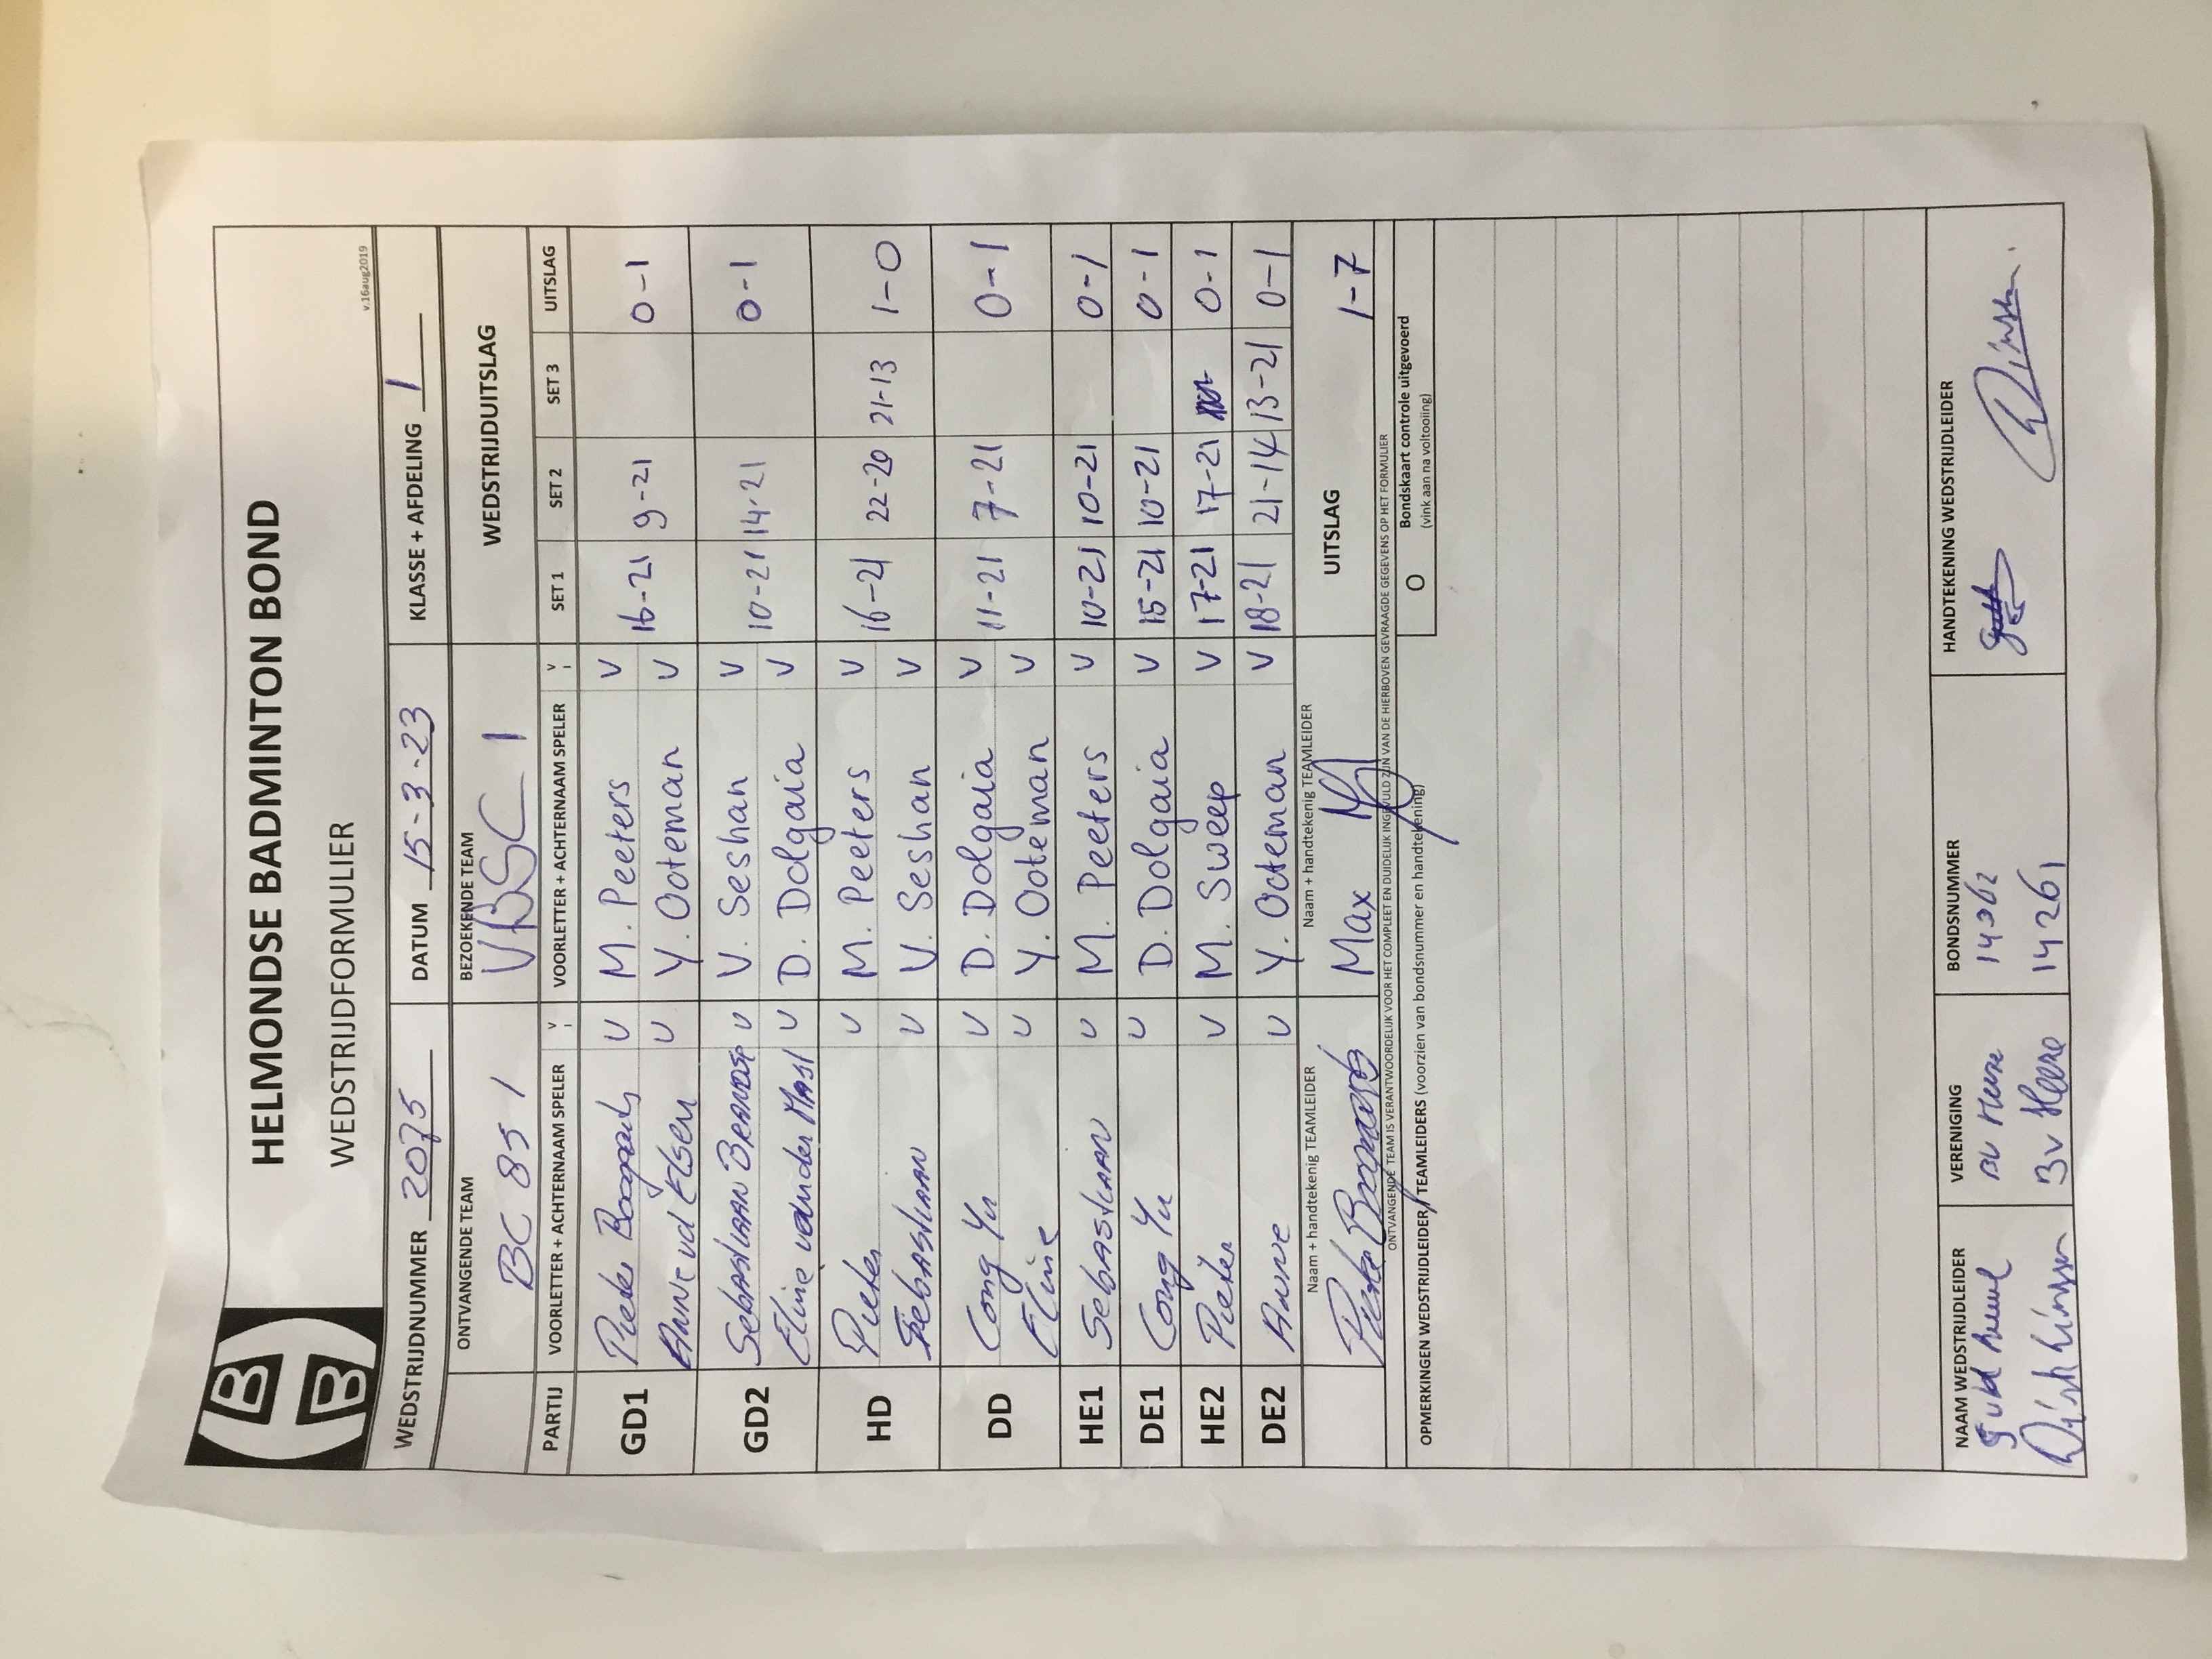 HELMONDSE BADMINTON BOND
WEDSTRIJDFORMULIER
v.16aug2019
WEDSTRIJDNUMMER 2075 DATUM 15-3-23 KLASSE + AFDELING 1
ONTVANGENDE TEAM BEZOEKENDE TEAM WEDSTRIJDUITSLAG
BC 85 1 VBSC 1
PARTIJ VOORLETTER + ACHTERNAAM SPELER V VOORLETTER + ACHTERNAAM SPELER V SET 1 SET 2 SET 3 UITSLAG
GD1 Pieter Bogaerts V M. Peeters V 16-21 9-21 0-1
Anne vd Elsen V Y. Ooteman V
GD2 Sebastiaan V V. Seshan V 10-21 14-21 0-1
Eline van der Maas V D. Dolgaia V
HD Pieter V M. Peeters V 16-21 22-20 21-13 1-0
Sebastiaan V V. Seshan V
DD Cong Yu V D. Dolgaia V 11-21 7-21 0-1
Eline V Y. Ooteman V
HE1 Sebastiaan V M. Peeters V 10-21 10-21 0-1
DE1 Cong Yu V D. Dolgaia V 15-21 10-21 0-1
HE2 Pieter V M. Sweep V 17-21 17-21 0-1
DE2 Anne V Y. Ooteman V 18-21 21-14 13-21 0-1
Naam + handtekenig TEAMLEIDER Naam + handtekenig TEAMLEIDER UITSLAG 1-7
Pieter Bogaerts Max
ONTVANGENDE TEAM IS VERANTWOORDELIJK VOOR HET COMPLEET EN DUIDELIJK INGEVULD ZIJN VAN DE HIERBOVEN GEVRAAGDE GEGEVENS OP HET FORMULIER
OPMERKINGEN WEDSTRIJDLEIDER/TEAMLEIDERS (voorzien van bondsnummer en handtekening)
O Bondskaart controle uitgevoerd
(vink aan na voltooiing)
NAAM WEDSTRIJDLEIDER VERENIGING BONDSNUMMER HANDTEKENING WEDSTRIJDLEIDER
14362
BV 14261